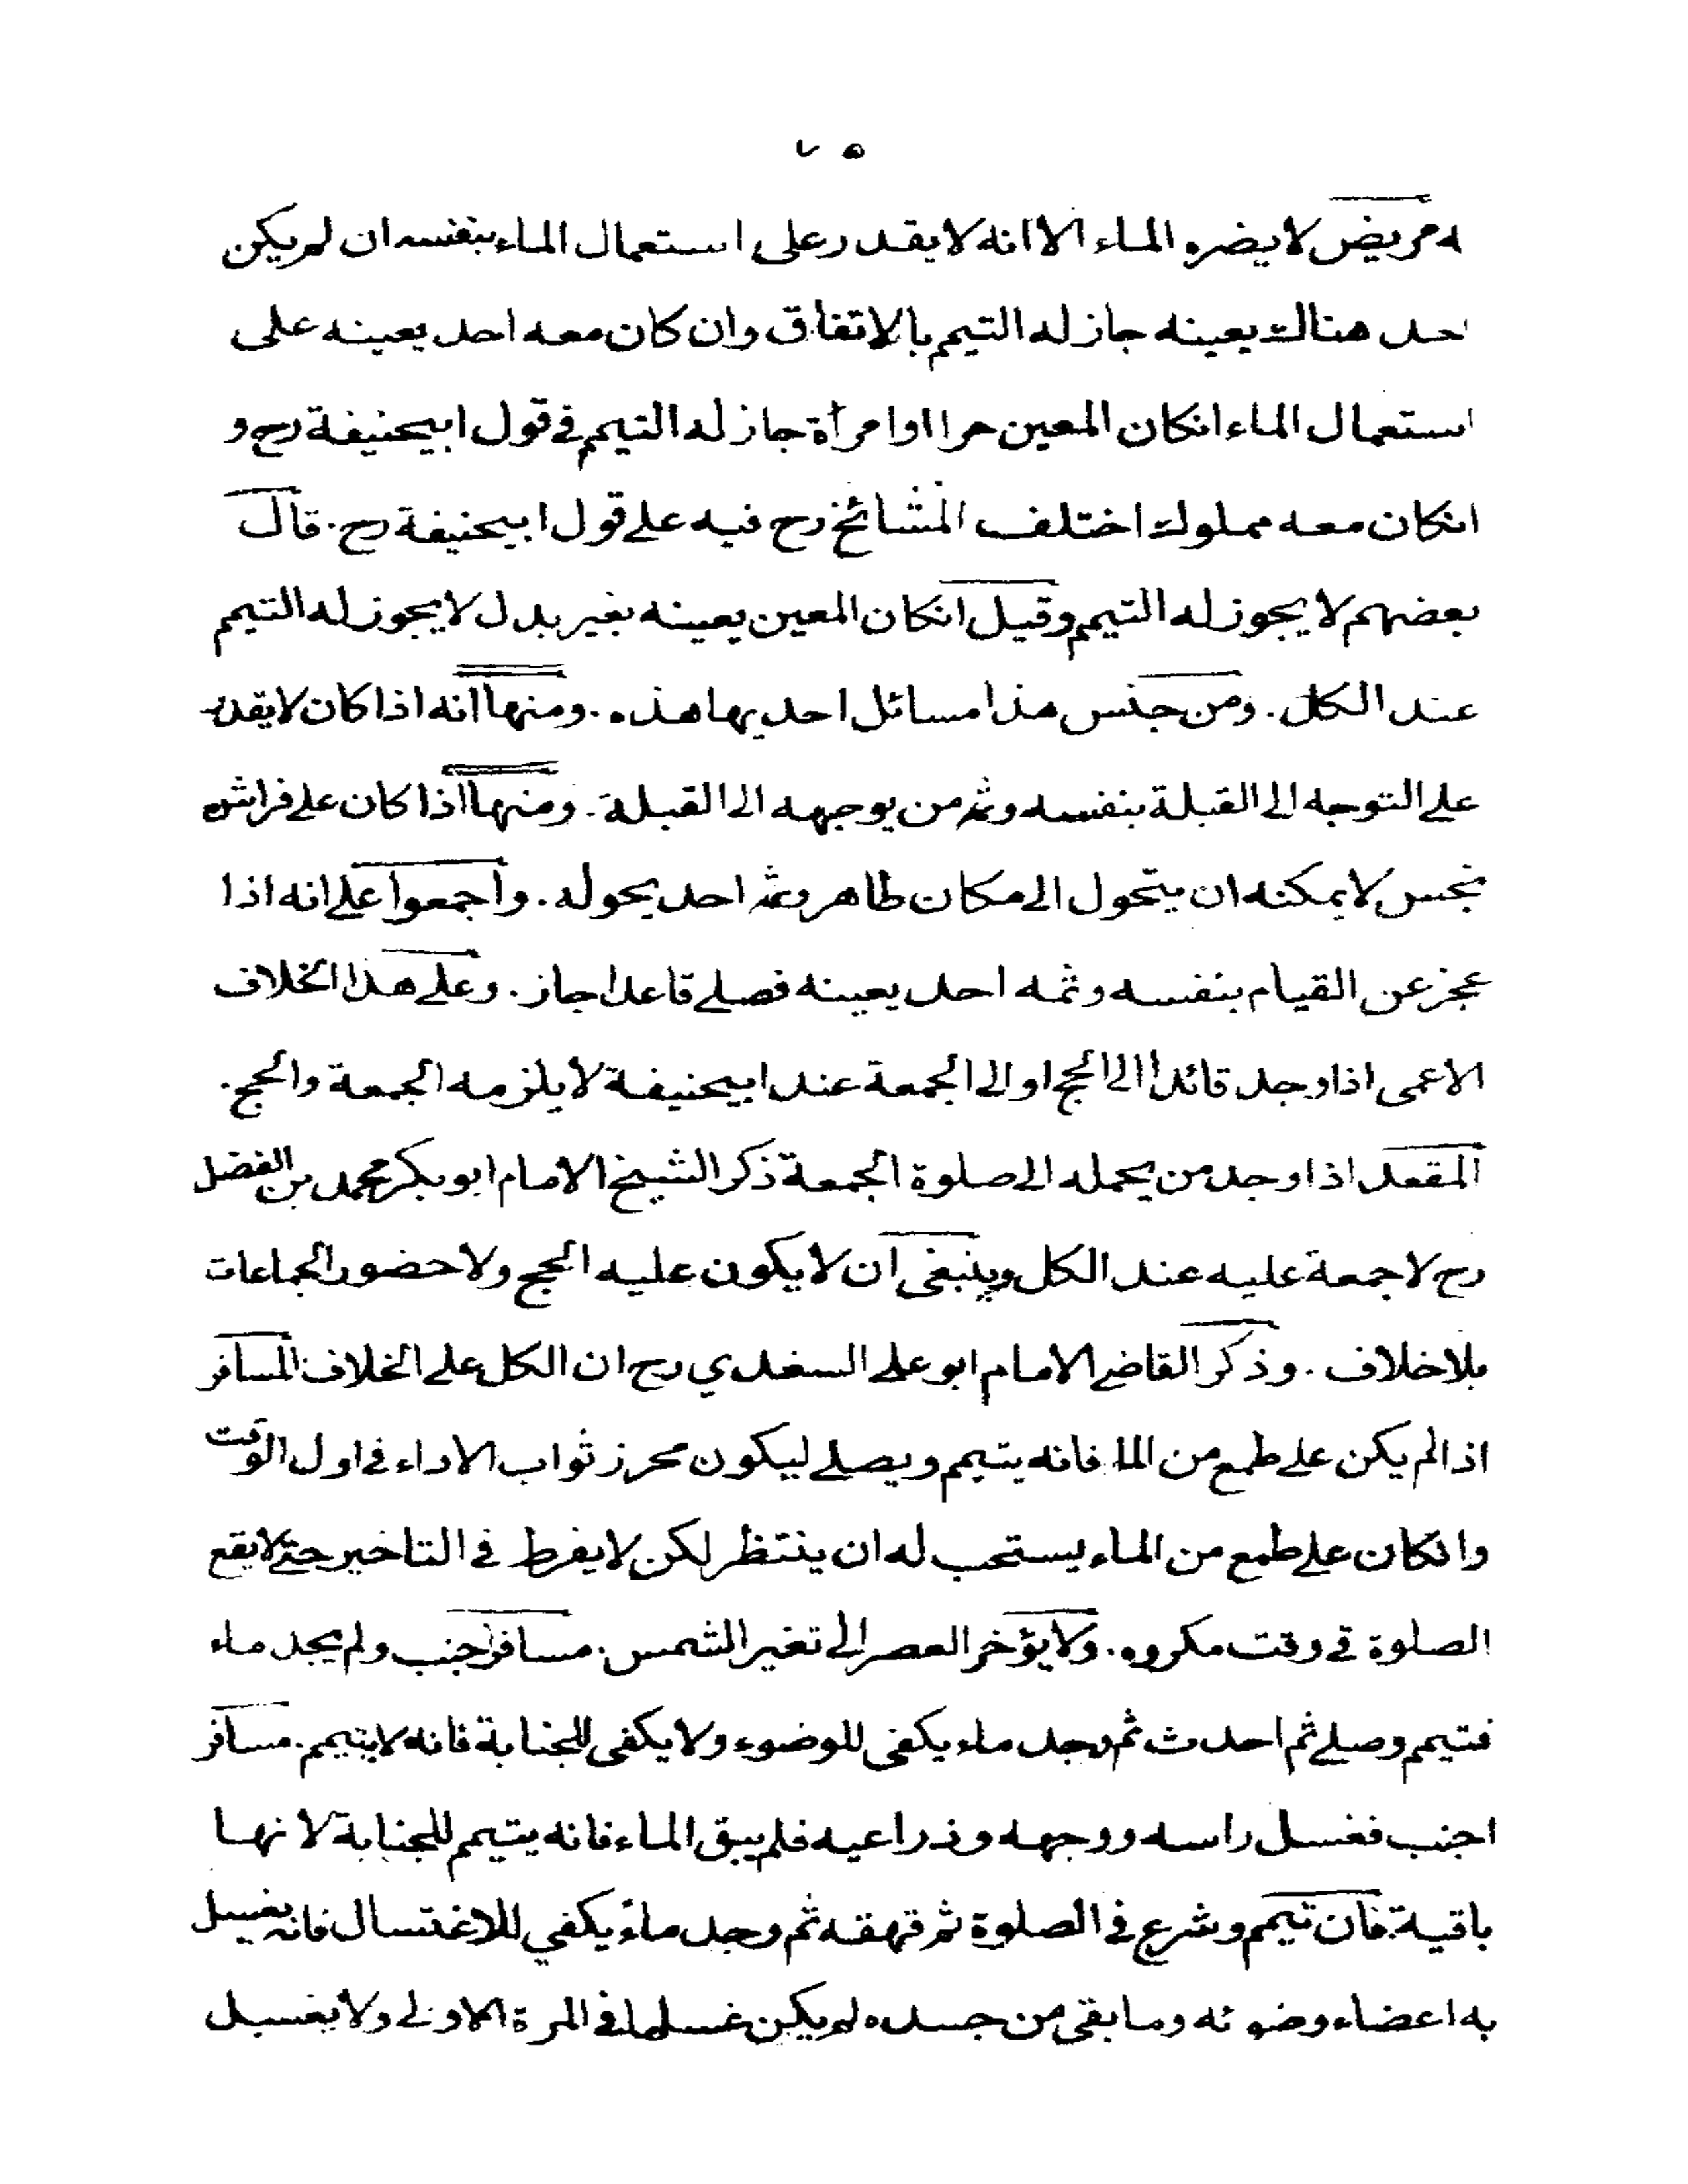 ٧٥
له مريض لا يضره الماء الا انه لا يقدر على استعمال الماء بنفسه ان لم يكن
احد هناك يعينه جاز له التيمم بالاتفاق وان كان معه احد يعينه على
استعمال الماء انكان المعين حرا اوامرأة جاز له التيمم في قول ابيحنيفة رح و
انكان معه مملوك اختلف المشائخ رح فيه على قول ابيحنيفة رح. قال
بعضهم لا يجوز له التيمم وقيل انكان المعين يعينه بغير بدل لا يجوز له التيمم
عند الكل. ومن جنس هذا مسائل احديها هذه. ومنها انه اذا كان لا يقدر
على التوجه الى القبلة بنفسه وثمه من يوجهه الى القبلة. ومنها اذا كان على فراش
نجس لا يمكنه ان يتحول الى مكان طاهر وثمه احد يحوله. واجمعوا على انه اذا
عجز عن القيام بنفسه وثمه احد يعينه فصلى قاعدا جاز. وعلى هذا الخلاف
الاعمى اذا وجد قائدا الى الحج او الى الجمعة عند ابيحنيفة لا يلزمه الجمعة والحج.
المقعد اذا وجد من يحمله الى صلوة الجمعة ذكر الشيخ الامام ابو بكر محمد بن الفضل
رح لا جمعة عليه عند الكل وينبغى ان لا يكون عليه الحج ولا حضور الجماعات
بلا خلاف. وذكر القاضى الامام ابو على السغدي رح ان الكل على الخلاف المسافر
اذا لم يكن على طمع من الماء فانه يتيمم ويصلى ليكون محرز ثواب الاداء في اول الوقت
وانكان على طمع من الماء يستحب له ان ينتظر لكن لا يفرط في التاخير حتى لا يقع
الصلوة في وقت مكروه. ولا يؤخر العصر الى تغير الشمس. مسافر اجنب ولم يجد ماء
فتيمم وصلى ثم احدث ثم وجد ماء يكفى للوضوء ولا يكفى للجنابة فانه لا يتيمم. مسافر
اجنب فغسل راسه ووجهه وذراعيه فلم يبق الماء فانه يتيمم للجنابة لانها
باقية. فان تيمم وشرع في الصلوة ثم قهقه ثم وجد ماء يكفي للاغتسال فانه يغسل
به اعضاء وضوئه وما بقى من جسده لم يكن غسلها في المرة الاولى ولا يغسل